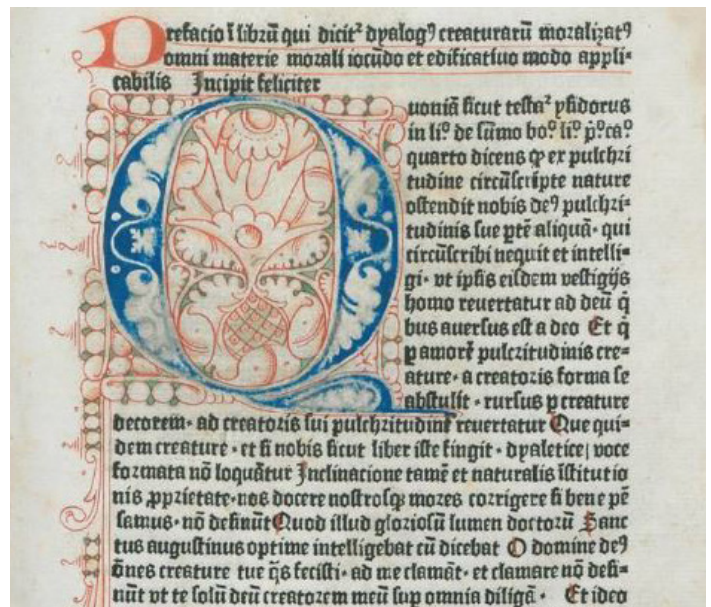 Prefacio ĩ librũ qui dicit᷑ dyalogꝰ creaturarũ moralizatꝰ
omni materie morali iocũdo et edificatiuo modo appli⸗
cabilis Incipit feliciter
Quoniã ſicut teſta᷑ yſidorus
in li.º de sũmo bo.º li.º p̲.ºca.º
quarto dicens ꝙ ex pulchri
tudine circũſcripte nature
oſtendit nobis deꝰ pulchri⸗
tudinis ſue ptẽ aliquã· qui
circũſcribi nequit et intelli⸗
gi· vt ipſis eiſdem veſtigijs
homo reuertatur ad deũ q̇
bus auerſus eſt a deo Et q̇
ꝑ amorẽ pulcritudinis cre⸗
ature· a creatoris forma ſe
abſtulit · rurſus ꝑ creature
decorem· ad creatoris ſui pulchritudinẽ reuertatur Que qui⸗
dem creature · et ſi nobis ſicut liber iſte fingit · dyaletice; voce
formata nõ loquãtur Inclinacione tamẽ et naturalis ĩſtitutio
nis ꝓprietate· nos docere noſtroſqꝫ mores corrigere ſi bene pẽ
ſamus· nõ deſinũt Quod illud glorioſũ lumen doctorũ Sanc
tus auguſtinus optime intelligebat cũ dicebat O domine deꝰ
õnes creature tue q̃s feciſti· ad me clamãt· et clamare nõ deſi⸗
nũt vt te ſolũ deũ creatorem meũ ſup omnia diligã · Et ideo